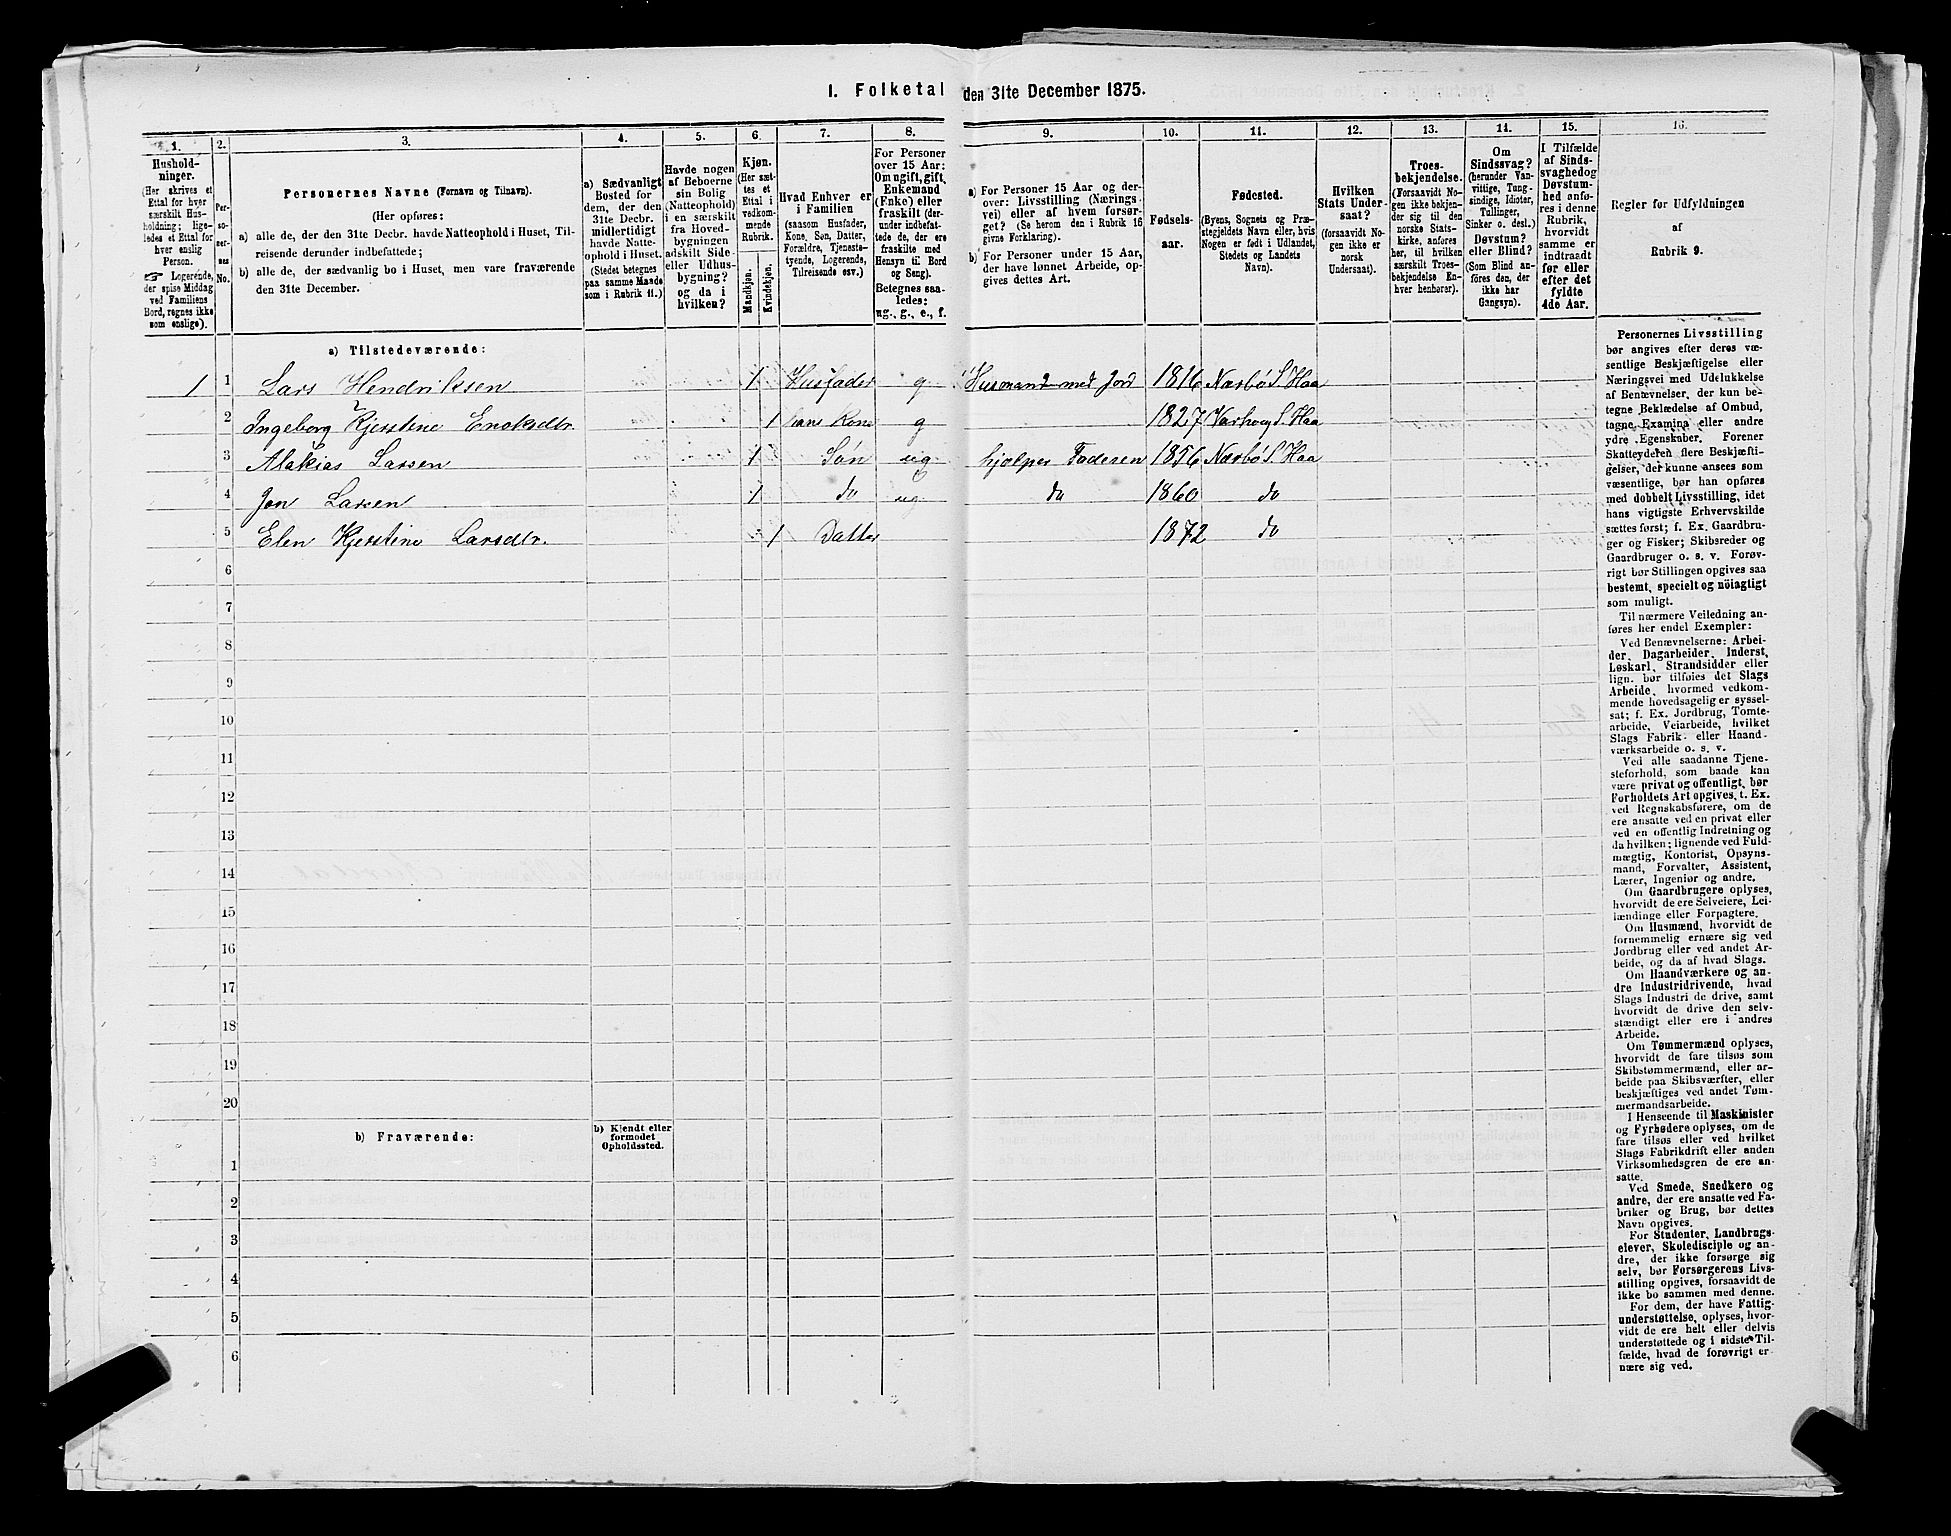 I. Folketal den 31te December 1875.
1.
2.
3.
4.
5.
6.
7.
8.
9.
10.
11.
12.
13.
14.
15.
16.
Hushold-
ninger.
(Her skrives et
Ettal for hver
særskilt Hus-
holdning; lige-
ledes et Ettal for
hver enslig
Person.
☞ Logerende,
der spise Middag
ved Familiens
Bord, regnes ikke
som enslige).
Per-
so-
ner-
nes
No.
Personernes Navne (Fornavn og Tilnavn).
(Her opføres:
a) alle de, der den 31te Decbr. havde Natteophold i Huset, Til-
reisende derunder indbefattede;
b) alle de, der sædvanlig bo i Huset, men vare fraværende
den 31te December.
a) Sædvanligt
Bosted for
dem, der den
31te Decbr.
midlertidigt
havde Natte-
ophold i Huset.
(Stedet betegnes
paa samme Maade
som i Rubrik 11.)
Havde nogen
af Beboerne
sin Bolig
(Natteophold)
i en særskilt
fra Hoved-
bygningen
adskilt Side-
eller Udhus-
bygning?
og da i
hvilken?
Kjøn.
(Her sæt-
tes et
Ettal i
vedkom-
mende
Rubrik.
Mandkjøn.
Kvindekjøn.
Hvad Enhver er
i Familien
(saasom Husfader,
Kone, Søn, Datter,
Forældre, Tjeneste-
tyende, Logerende,
Tilreisende osv.)
For Personer
over 15 Aar:
Om ugift, gift,
Enkemand
(Enke) eller
fraskilt (der-
under indbefat-
tede de, der ere
fraskilte med
Hensyn til Bord
og Seng).
Betegnes saa-
ledes:
ug., g., e., f.
a) For Personer 15 Aar og der-
over: Livsstilling (Nærings-
vei) eller af hvem forsør-
get? (Se herom den i Rubrik 16
givne Forklaring).
b) For Personer under 15 Aar,
der have lønnet Arbeide, op-
gives dettes Art.
Fødsels-
aar.
Fødested.
(Byens, Sognets og Præ-
stegjeldets Navn eller, hvis
Nogen er født i Udlandet,
Stedets og Landets
Navn).
Hvilken
Stats Under-
saat?
(forsaavidt No-
gen ikke er
norsk
Undersaat).
Troes-
bekjendelse.
(Forsaavidt No-
gen ikke bekjen-
der sig til den
norske Stats-
kirke, anføres
her, til hvilken
særskilt Troes-
bekjendelse En-
hver henhører).
Om
Sindssvag?
(herunder Van-
vittige, Tung-
sindige, Idioter,
Tullinger,
Sinker o. desl.)
Døvstum?
eller Blind?
(Som Blind an-
føres den, der
ikke har
Gangsyn).
I Tilfælde
af Sinds-
svaghed og
Døvstum-
hed anfø-
res i denne
Rubrik,
hvorvidt
samme er
indtraadt
før eller
efter det
fyldte
4de Aar.
Regler for Udfyldningen
af
Rubrik 9.
a) Tilstedeværende:
1 1 Lars Hendriksen 1 Husfader g Husmand med Jord 1816 Nærbø S. Haa
2 Ingeborg Kjerstine Enoksdtr. 1 hans Kone g 1827 Varhoug S. Haa
3 Alakias Larsen 1 Søn ug hjælper Faderen 1856 Nærbø S. Haa
4 Jon Larsen 1 do ug do 1860 do
5 Elen Kjerstine Larsdtr. 1 Datter 1872 do
6
7
8
9
10
11
12
13
14
15
16
17
18
19
20
b) Fraværende:
b) Kjendt eller
formodet
Opholdssted.
1
2
3
4
5
6
Personernes Livsstilling
bør angives efter deres væ-
sentlige Beskjæftigelse eller
Næringsvei med Udelukkelse
af Benævnelser, der kun be-
tegne Beklædelse af Ombud,
tagne Examina eller andre
ydre Egenskaber. Forener
Skatteyderen flere Beskjæfti-
gelser, der kunne ansees som
væsentlige, bør han opføres
med dobbelt Livsstilling, idet
hans vigtigste Erhvervskilde
sættes først; f. Ex. Gaardbru-
ger og Fisker; Skibsreder og
Gaardbruger o. s. v. Forøv-
rigt bør Stillingen opgives saa
bestemt, specielt og nöiagtigt
som muligt.
Til nærmere Veiledning an-
føres her endel Exempler:
Ved Benævnelserne: Arbei-
der, Dagarbeider, Inderst,
Løskarl, Strandsidder eller
lign. bør tilføies det Slags
Arbeide, hvormed vedkom-
mende hovedsagelig er syssel-
sat; f. Ex. Jordbrug, Tomte-
arbeide, Veiarbeide, hvilket
Slags Fabrik- eller Haand-
værksarbeide o. s. v.
Ved alle saadanne Tjene-
steforhold, som baade kan
være privat og offentligt, bør
Forholdets Art opgives, t. Ex.
ved Regnskabsførere, om de
ere ansatte ved en privat eller
ved en offentlig Indretning og
da hvilken; lignende ved Fuld-
mægtig, Kontorist, Opsyns-
mand, Forvalter, Assistent,
Lærer, Ingeniør og andre.
Om Gaardbrugere oplyses,
hvorvidt de ere Selveiere, Lei-
lændinge eller Forpagtere.
Om Husmænd, hvorvidt de
fornemmelig ernære sig ved
Jordbrug eller ved andet Ar-
beide, og da af hvad Slags.
Om Haandværkere og an-
dre Industridrivende, hvad
Slags Industri de drive, samt
hvorvidt de drive den selv-
stændigt eller ere i andres
Arbeide.
Om Tømmermænd oplyses,
hvorvidt de fare tilsøs som
Skibstømmermænd, eller ar-
beide paa Skibsværfter, eller
beskjæftiges ved andet Tøm-
mermandsarbeide.
I Henseende til Maskinister
og Fyrbødere oplyses, om de
fare tilsøs eller ved hvilket
Slags Fabrikdrift eller anden
Virksomhedsgren de ere an-
satte.
Ved Smede, Snedkere og
andre, der ere ansatte ved Fa-
briker og Brug, bør dettes
Navn opgives.
For Studenter, Landbrugs-
elever, Skoledisciple og an-
dre, der ikke forsørge sig
selv, bør Forsørgerens Livs-
stilling opgives, forsaavidt de
ikke bo sammen med denne.
For dem, der have Fattig-
understøttelse, oplyses, hvor-
vidt de ere helt eller delvis
understøttede og i sidste Til-
fælde, hvad de forøvrigt er-
nære sig ved.